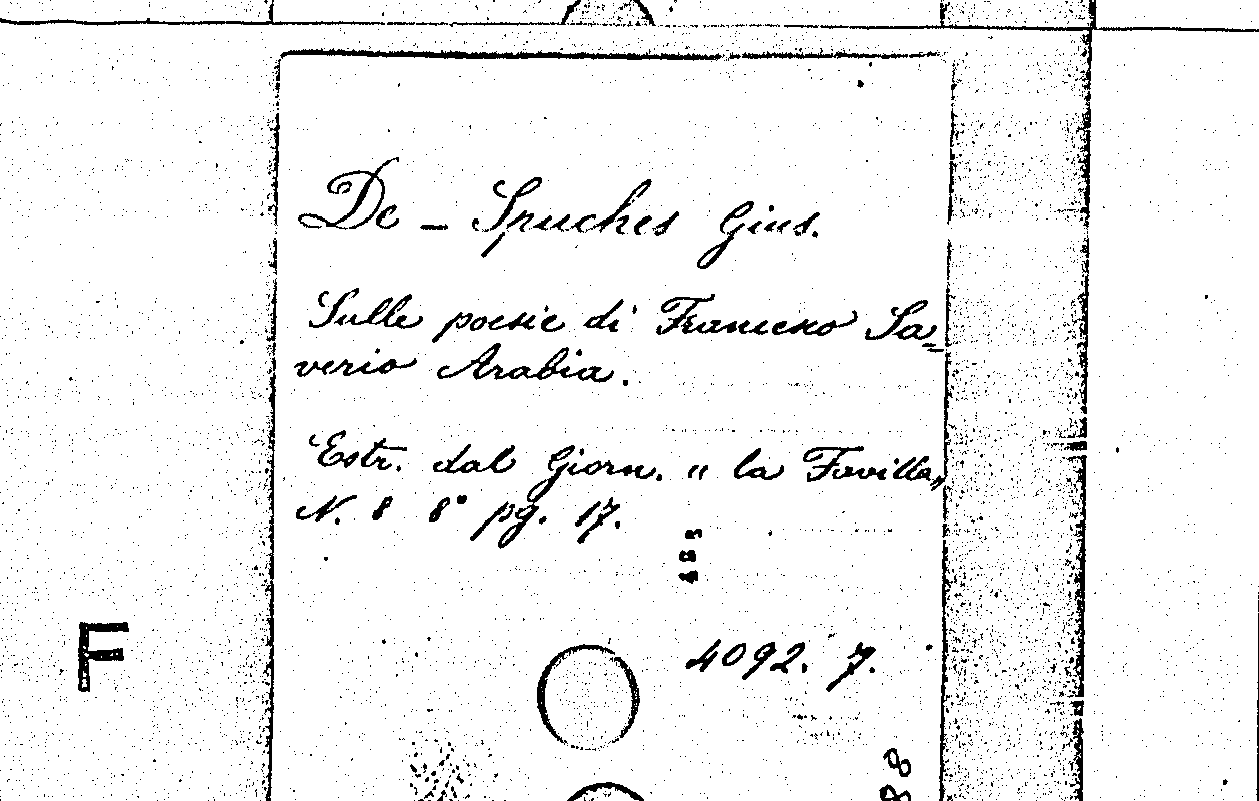 De - Spuches Gius.
Sulle poesie di Francesco Sa=
verio Arabia.
Estr. dal Giorn. "la Favilla"
N. 8 8° pg. 17.
485
4092. 7.
F